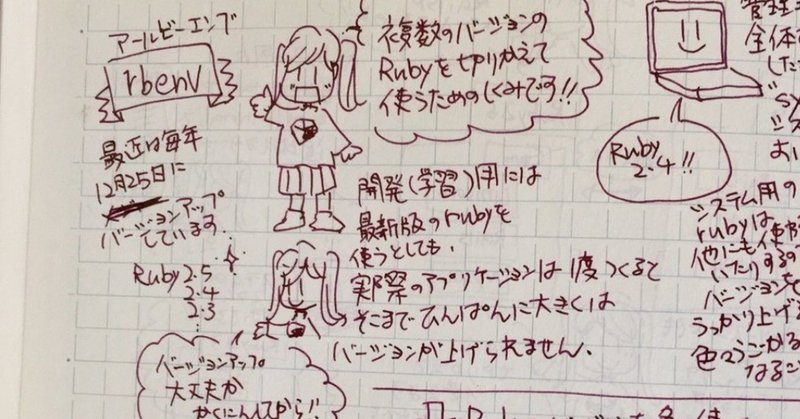 アールビーエンブ
rbenv
最近は毎年
12月25日に
バージョンアップ
しています
Ruby 2.5
2.4
2.3
バージョンアップ
大丈夫か
かくにんしてから!!
複数のバージョンの
Rubyを切りかえて
使うためのしくみです!!
開発(学習)用には
最新版のrubyを
使うとしても、
実際のアプリケーションは1度つくると
そこまでひんぱんに大きくは
バージョンが上げられません.
Ruby
2.4!!
管理
全体
した
システム用の
rubyは
他にも使
いたりするの
バージョンを
うっかり上げる
色々うごかな
なるこ